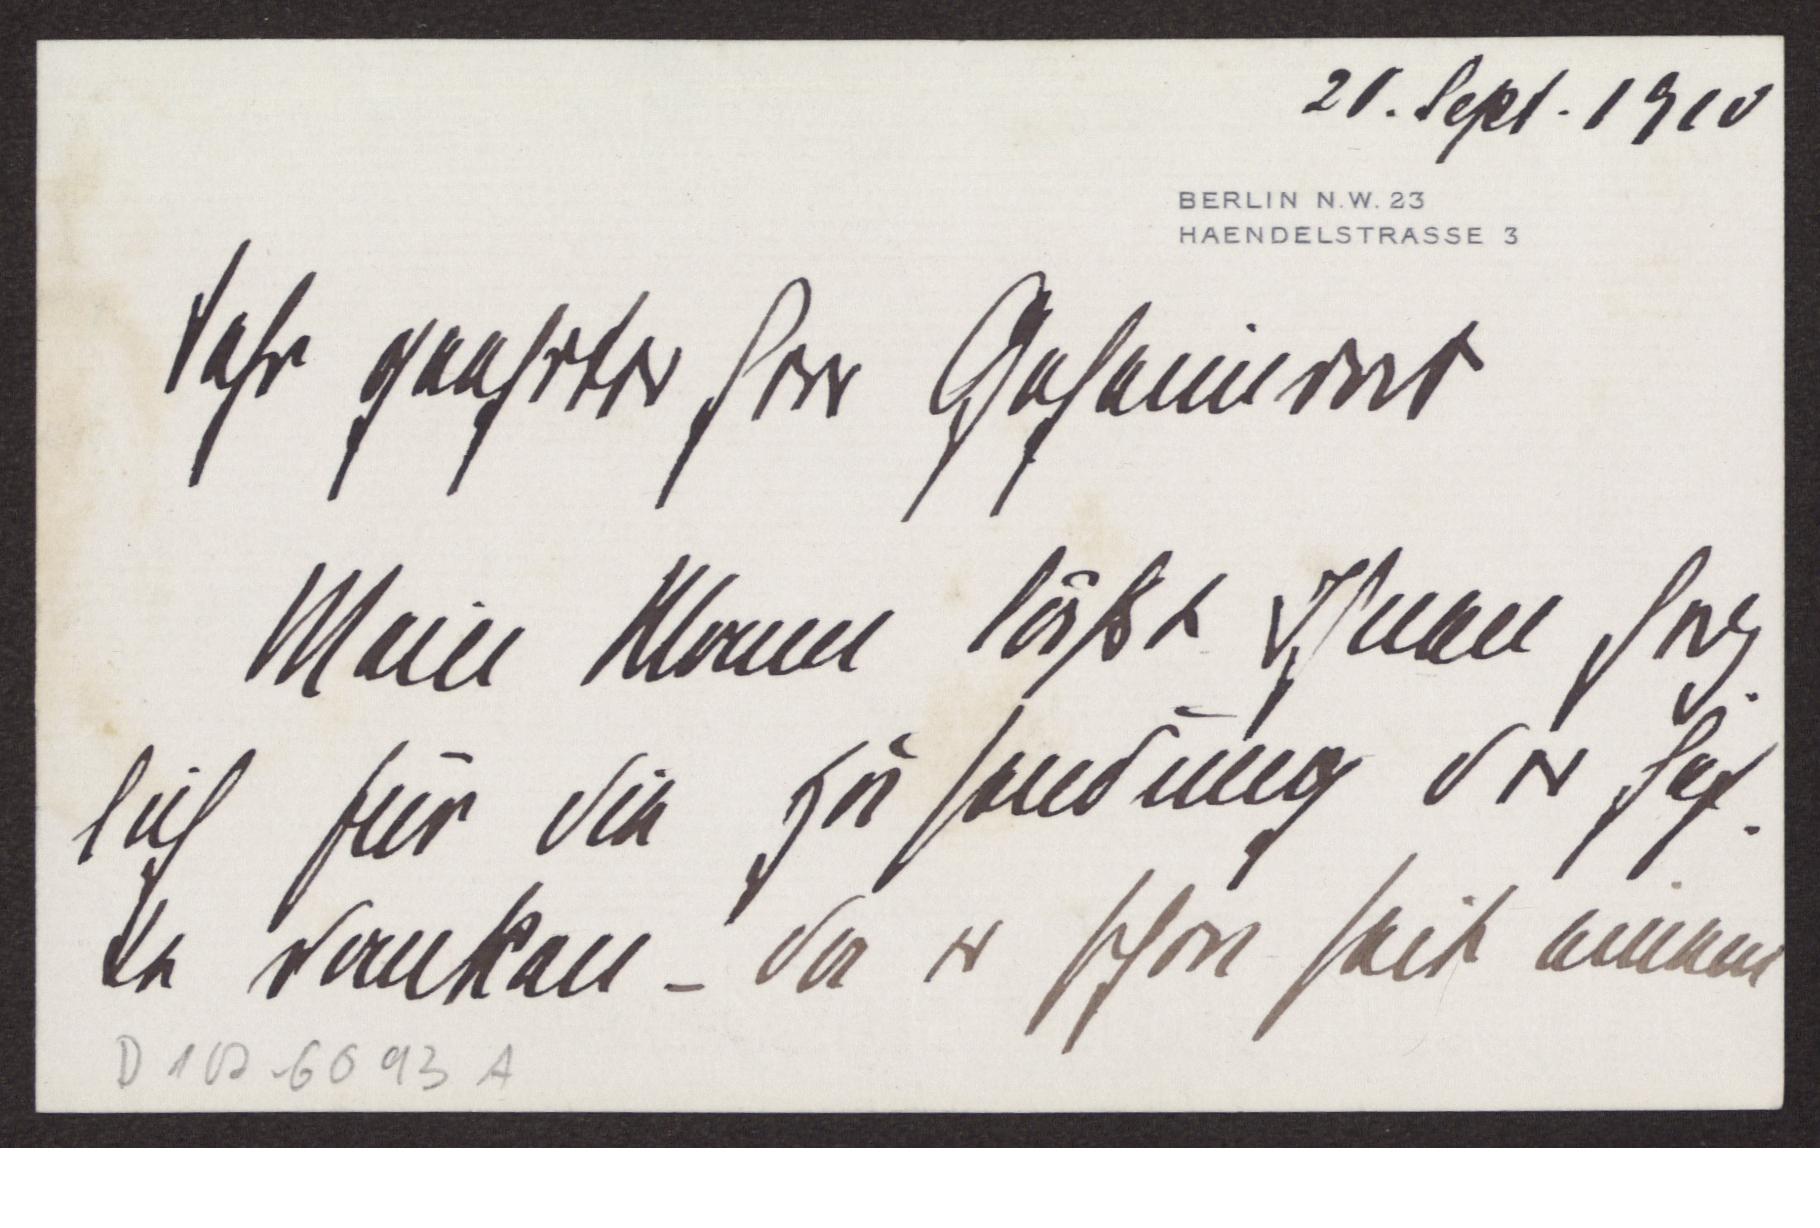 20. Sept. 1910
BERLIN N.W. 23
HAENDELSTRASSE 3
Sehr geehrter Herr Geheimrat
Mein Mann läßt Ihnen herz.
lich für die Zusendung der Hef.
te danken – da er schon seit einem
D 6693 A